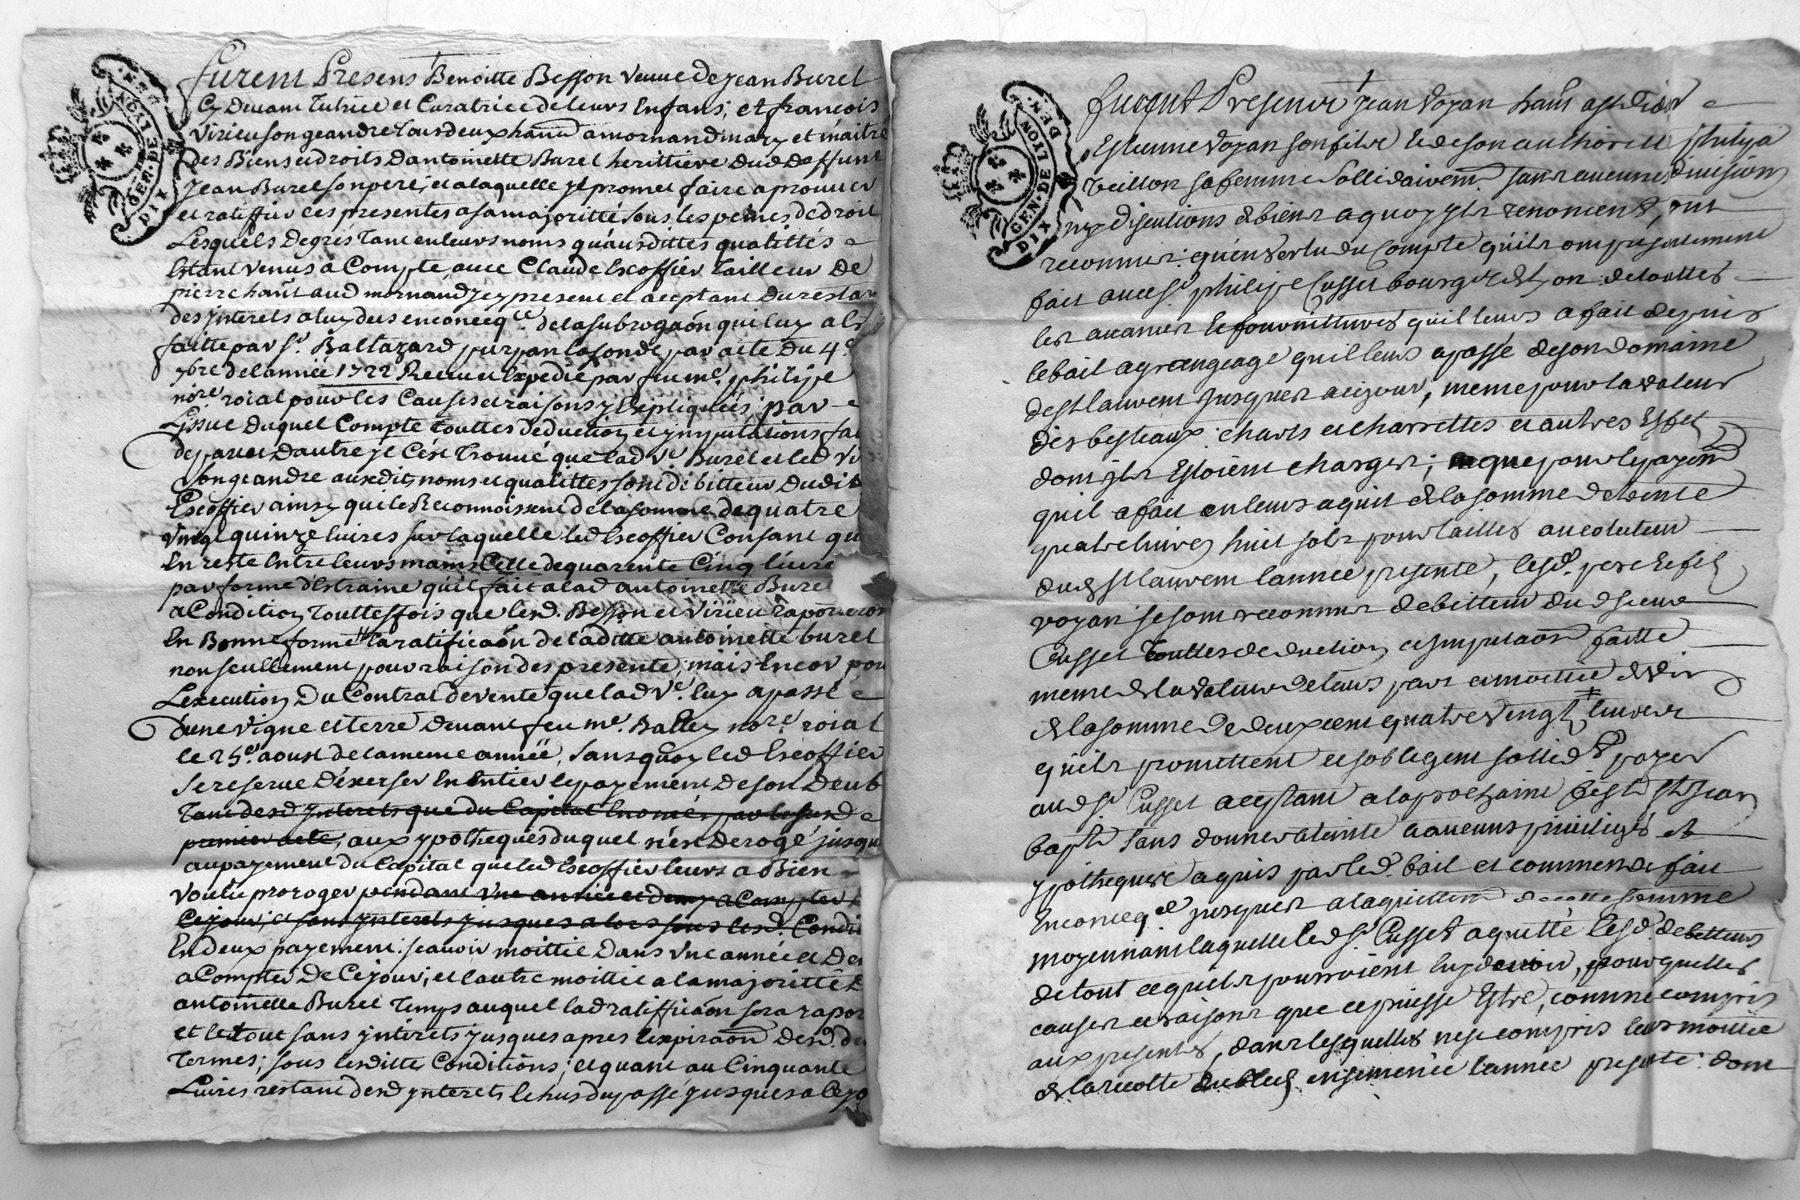 GEN. DE LYON
DIX
furent Presens Benoitte Besson veuve de Jean Burel
Cy Devant Tutrice et Curatrice de leurs Enfans; et francois
Virieu son geandre tous deux habit. a mornand mary et maitre
des Biens et droits d'antoinette Burel heritiere dud. deffunt
Jean Burel son pere, et a laquelle Jl promet faire aprouver
et ratiffier ces presentes a sa majoritté sous les peines de droit
Lesquels de grés tant en leurs noms qu'ausdittes qualittés
Estant venus à Compte avec Claude Escoffier tailleur de
pierre habt. aud. mornand Jcy present et aceptant du restan
des Jnterets a luy deus en conceq.ce de la subrogaõn qui luy a ét
faitte par Sr. Baltazard purpan la fonde par acte du 4e.
7bre de l'année 1722 Receu et Expedié par feu me. philipe
nore. roial pour les Causes et raisons y Expliquées; par
Lissue duquel Compte touttes déduction et Jmputations fai
de part et d'autre Je C'ést Trouvé que lad. ve. Burel et led. Vi
son geandre ausdits noms et qualittés sont débitteur dudit
Escoffier ainsy qu'ils Reconnoissent de la somme de quatre
vingt quinze livres sur laquelle led. Escoffier Consant qu
En reste Entre leurs mains Celle de quarente Cinq livre
par forme d'Estraine qu'il fait a lad. antoinette Burel
a Condition touttesfois que lesd. Besson et Virieu raporteron
En Bonne forme la ratificaõn de laditte antoinette burel
non seullement pour raison des presente, mais Encor pou
L'execution Du Contrat de vente que lad. ve. luy a passé
d'une vigne et terre devant feu me. Balley nore. roial
le 25e. aoust de la meme année, sans quoy led. Escoffier
se reserve d'exerser En Entier le payement de son deub
Tant desd. Jnterets que du Capital Enoncés par le susd.
premier acte, aux ypotheques duquel n'est derogé jusqu
au payement du Capital que led. Escoffier leurs a Bien
voulu proroger pendant une année et demy a Compter
Cejour, et sans Jnterets jusques alors sous lesd. Condi
En deux payement: scavoir moittié dans une année et de
a Compter de Cejour; et l'autre moittié a la majoritté d
antoinette Burel temps auquel lad. ratifficaõn sera rapor
et le tout sans Jnterets jusques apres l'expiraõn desd. de
termes; sous lesditte Conditions; et quant au Cinquante
Livres restant desd. Jnterets Echus du passé jusques a cejo
GEN. DE LYON
DIX
furent Presents Jean Voyan habt. a st Didier
Estienne Voyan son fils et de son authorité philipa
veillon sa femme sollidairemt. sans aucunes division
ny discutions de biens a quoy Jls renoncent, ont
reconnus: qu'en vertu du Compte qu'ils ont presentement
fait avec Sr. philipe Cusset bourgois de Lyon: de touttes
les avances et fournittures qu'il leurs a fait depuis
le bail a grangeage qu'il leurs a passé de son domaine
de st Laurent jusques a cejour, meme pour la valeur
des bestiaux: chars et charrettes et autres Effet
dont Jls Estoient charges; que pour le payemt.
qu'il a fait en leurs aquit de la somme de trente
quatre livres huit sols pour tailles au colecteur
dud. st Laurent l'année presente, lesd. pere et fils
voyan se sont reconnus debitteur dud. sieur
Cusset touttes deduction et Jmputaõn faitte
meme de la valeur de leurs part et moittié
de la somme de deux cent quatre vingt livres
qu'ils promettent et s'obligent sollidt. payer
aud. Sr. Cusset aceptant a la prochaine feste st Jean
bapte. sans donner ateinte a aucuns privileges et
ypotheques aquis par led. bail et commende fait
En conceq.ce jusques a l'aquittemt. de cette somme
moyennant laquelle led. Sr. Cusset a quitté lesd. debitteurs
de tout ce qu'ils pourroient luy devoir, pour quelles
causes et raisons que ce puisse Estre, comme compris
aux presentes, dans lesquelles n'est compris leurs moittié
de la recolte du bled ensemencée l'année presente: dont